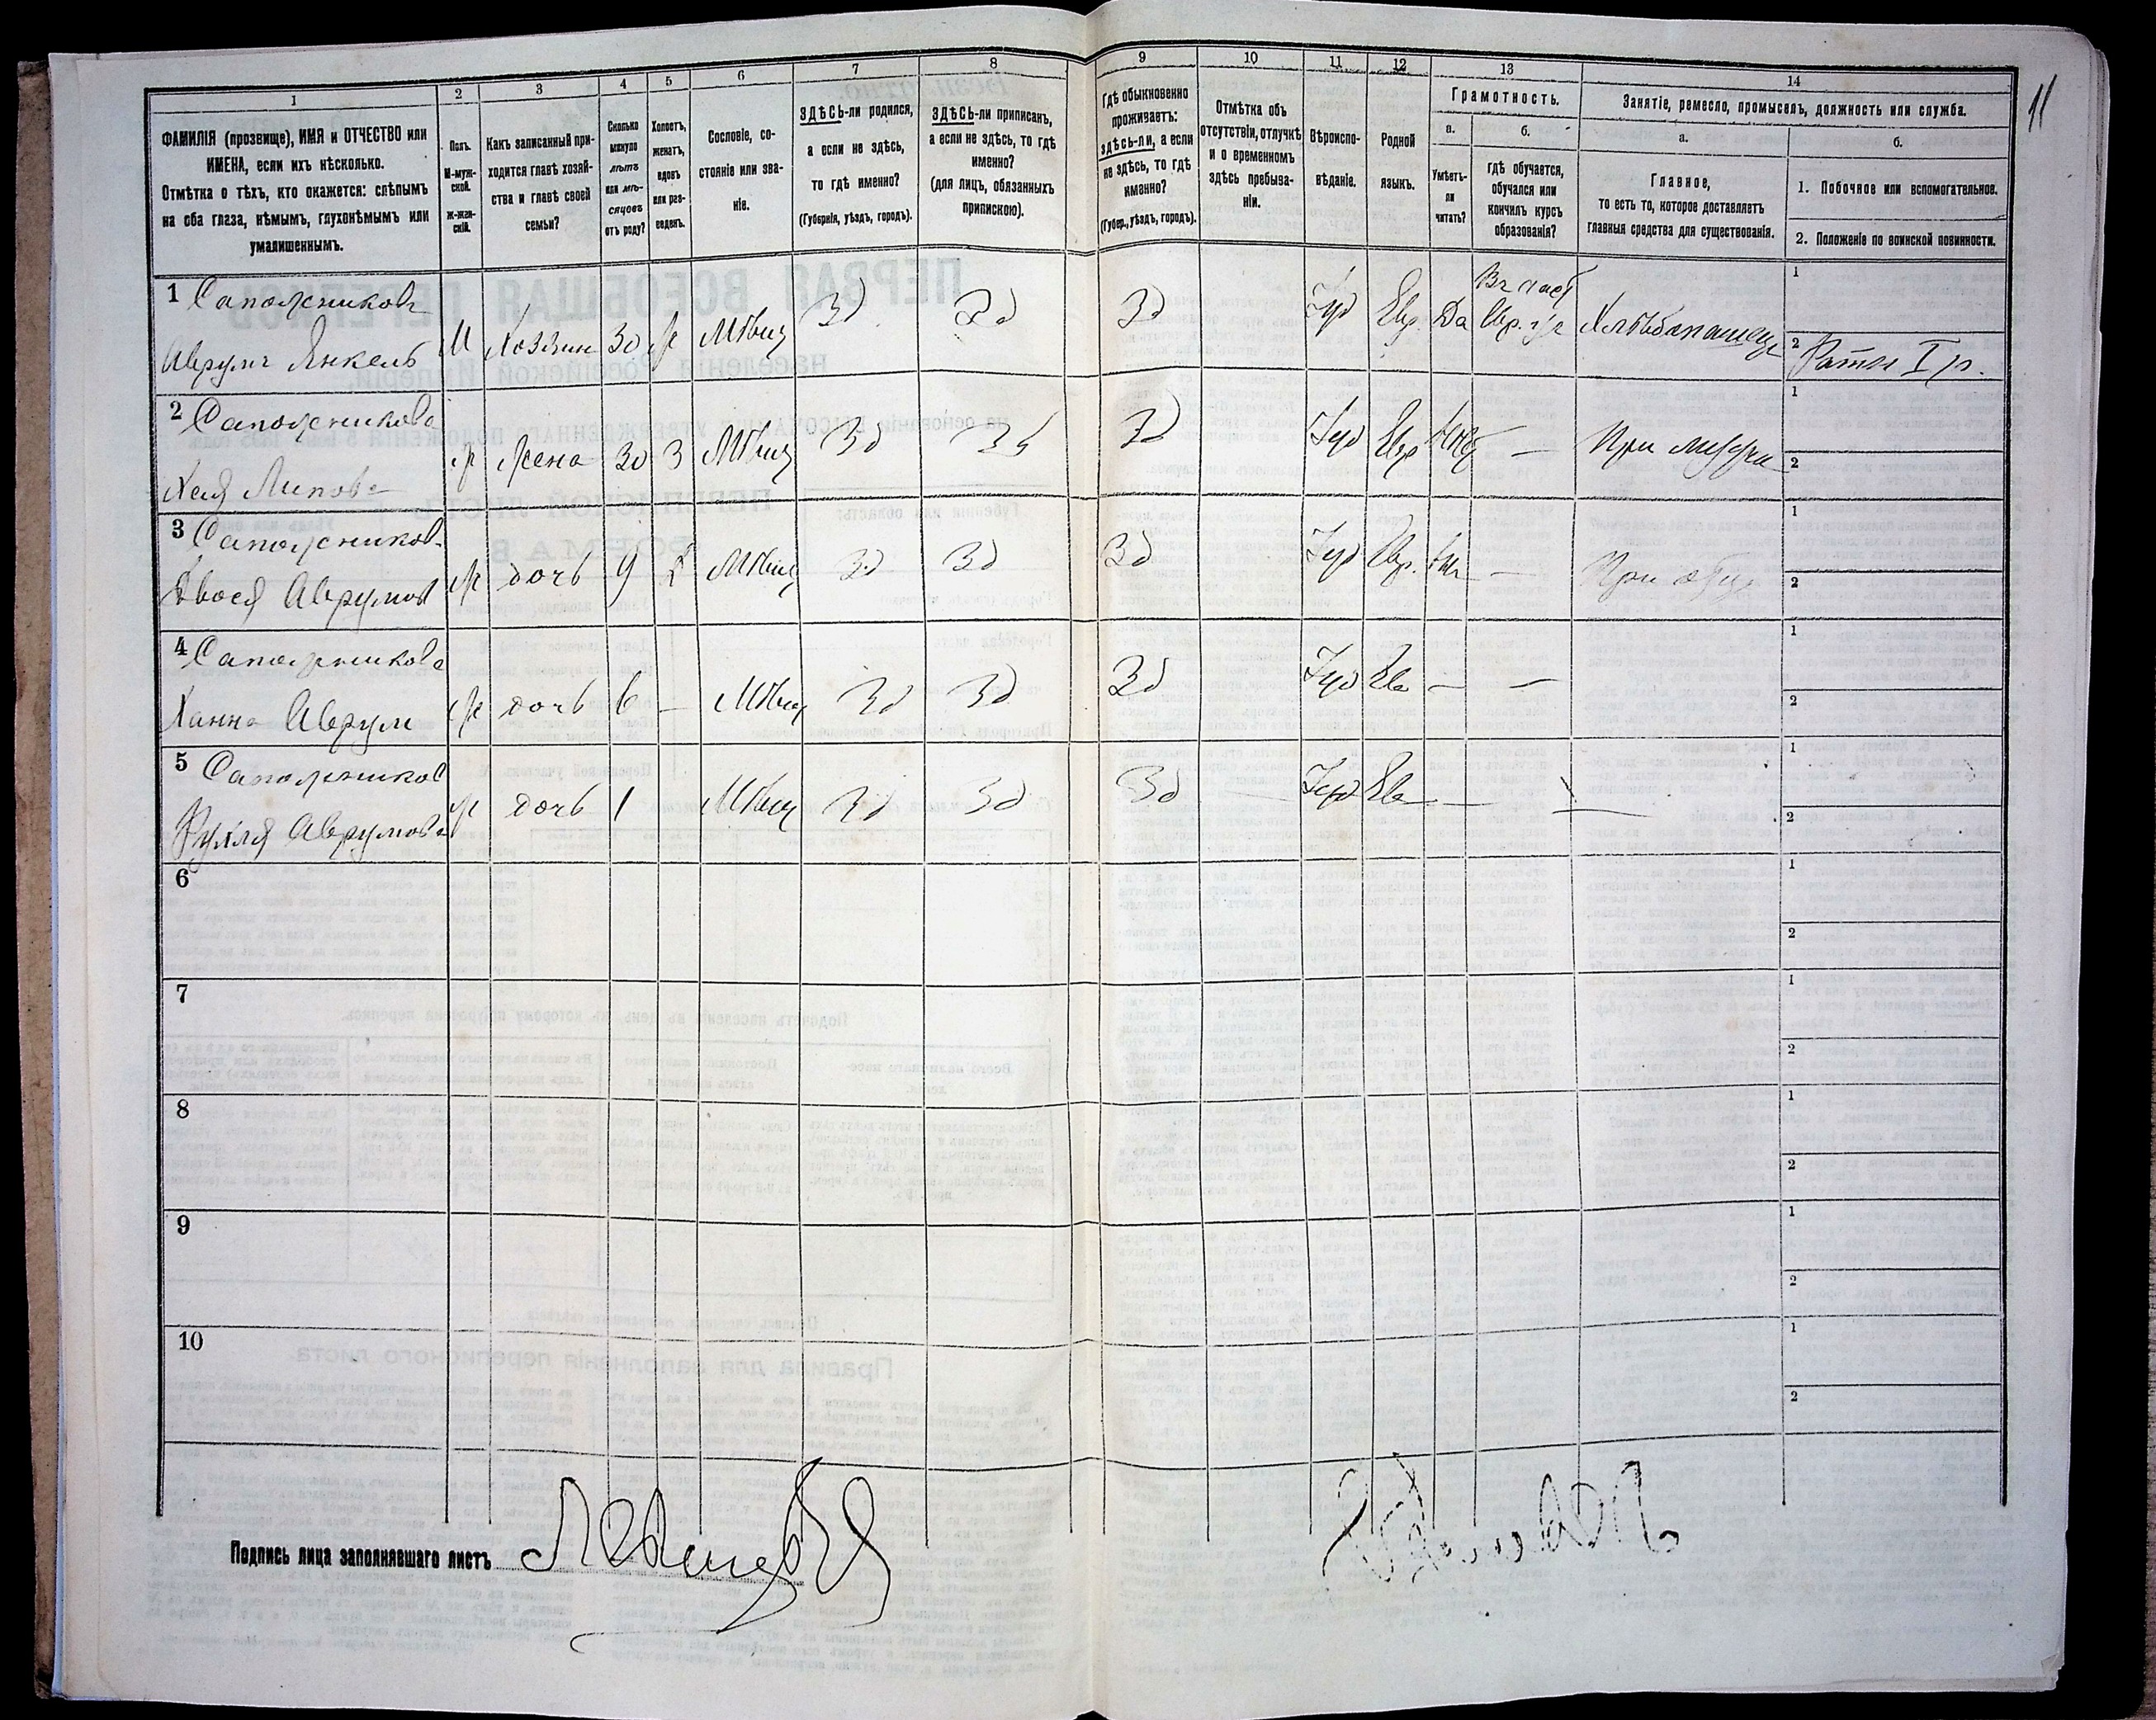 11
1 2 3 4 5 6 7 8 9 10 11 12 13 14
ФАМИЛІЯ (прозвище), ИМЯ и ОТЧЕСТВО или
ИМЕНА, если ихъ нѣсколько.
Отмѣтка о тѣхъ, кто окажется: слѣпымъ
на оба глаза, нѣмымъ, глухонѣмымъ или
умалишеннымъ.
Полъ.
М-муж-
ской.
Ж-жен-
скій.
Какъ записанный при-
ходится главѣ хозяй-
ства и главѣ своей
семьи?
Сколько
минуло
лѣтъ
или мѣ-
сяцевъ
отъ роду?
Холостъ,
женатъ,
вдовъ
или раз-
веденъ.
Сословіе, со-
стояніе или зва-
ніе.
ЗДѢСЬ-ли родился,
а если не здѣсь,
то гдѣ именно?
(Губернія, уѣздъ, городъ).
ЗДѢСЬ-ли приписанъ,
а если не здѣсь, то гдѣ
именно?
(для лицъ, обязанныхъ
припискою).
Гдѣ обыкновенно
проживаетъ:
здѣсь-ли, а если
не здѣсь, то гдѣ
именно?
(Губер., уѣздъ, городъ).
Отмѣтка объ
отсутствіи, отлучкѣ
и о временномъ
здѣсь пребыва-
ніи.
Вѣроиспо-
вѣданіе.
Родной
языкъ.
Грамотность.
а.
Умѣетъ-
ли
читать?
б.
гдѣ обучается,
обучался или
кончилъ курсъ
образованія?
Занятіе, ремесло, промыселъ, должность или служба.
а.
Главное,
то есть то, которое доставляетъ
главныя средства для существованія.
б.
1. Побочное или вспомогательное.
2. Положеніе по воинской повинности.
1 Сапожниковъ
Аврумъ Янкель М Хозяинъ 30 ж Мѣщ Зд Зд Зд Іуд Евр. Да Хлѣбопашец
1
2 Ратн I р.
2 Сапожникова
Хая Липова ж Жена 30 З Мѣщ Зд Зд Зд Іуд Евр Нѣт — При мужи
1
2
3 Сапожников
Двося Аврумов ж дочь 9 Мѣщ Зд Зд Зд Іуд Евр. — При отце
1
2
4 Сапожникова
Ханна Аврум ж дочь 6 — Мѣщ Зд Зд Зд Іуд Ев — —
1
2
5 Сапожников
Рухля Аврумова ж дочь 1 Мѣщ Зд Зд Зд — Іуд Ев — —
1
2
6
1
2
7
1
2
8
1
2
9
1
2
10
1
2
Подпись лица заполнявшаго листъ